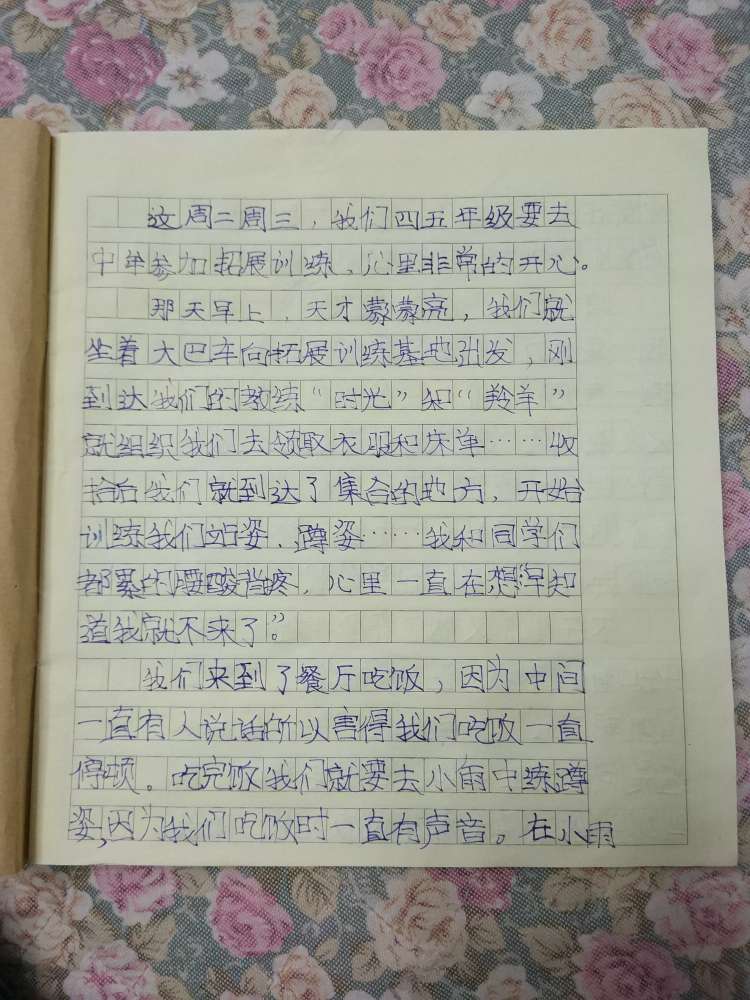 这周二周三，我们四五年级要去
中年参加拓展训练，心里非常的开心。
那天早上，天才蒙蒙亮，我们就
坐着大巴车向拓展训练基地出发，刚
到达我们的教练“时光”和“羚羊”
就组织我们去领取衣服和床单……收
拾后我们就到达了集合的地方，开始
训练我们站姿、蹲姿……我和同学们
都累的腰酸背疼，心里一直在想“早知
道我就不来了”。
我们来到了餐厅吃饭，因为中间
一直有人说话所以害得我们吃饭一直
停顿。吃完饭我们就要去小雨中练蹲
姿，因为我们吃饭时一直有声音。在小雨